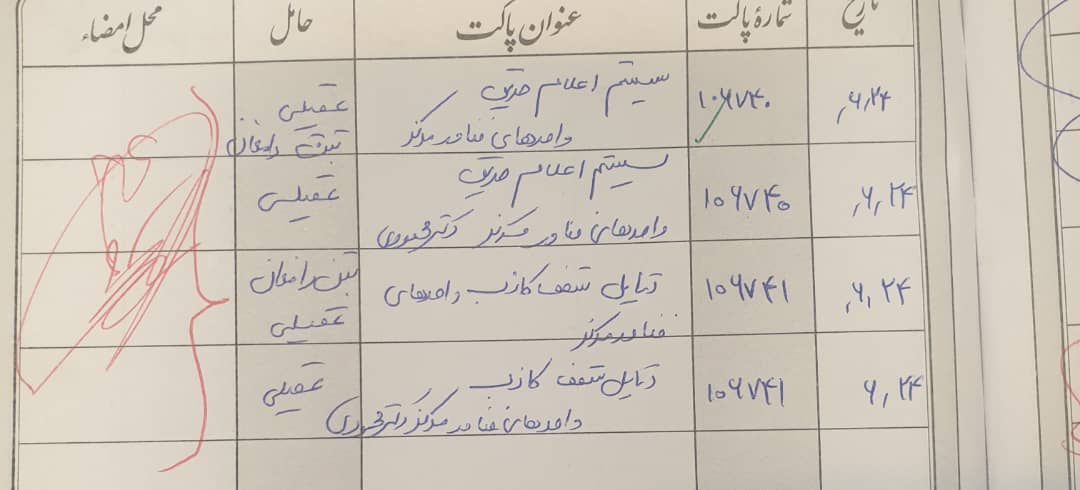 تاریخ
شمارهٔ پاکت
عنوان پاکت
حامل
محل امضاء
۶٫۲۴
۱۰۶۷۴۰
سیستم اعلام حریق
واحدهای فناور مرکز
عقیلی
۶٫۲۴
۱۰۶۷۴۰
سیستم اعلام حریق
واحدهای فناور مرکز دکتر
عقیلی
۶٫۲۴
۱۰۶۷۴۱
سقف کاذب واحدهای
فناور مرکز
عقیلی
۶٫۲۴
۱۰۶۷۴۱
سقف کاذب
واحدهای فناور مرکز دکتر
عقیلی